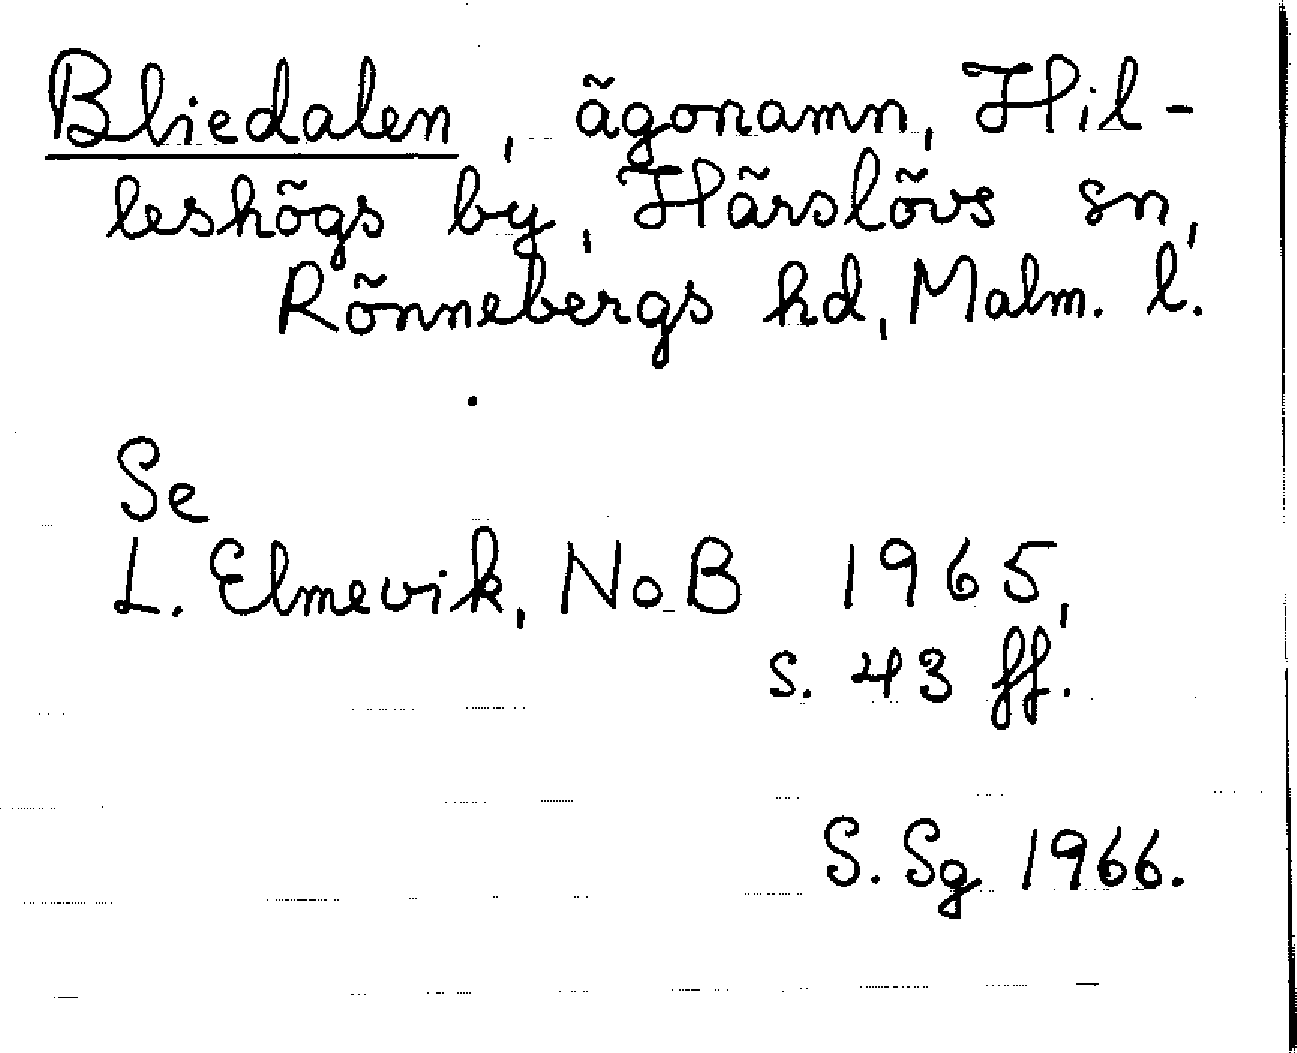 Bliedalen, ägonamn, Hil-
leshögs by, Härslövs sn,
Rönnebergs hd, Malm. l.
Se
L. Elmevik, NoB 1965,
s. 43 ff.
S. Sg 1966.